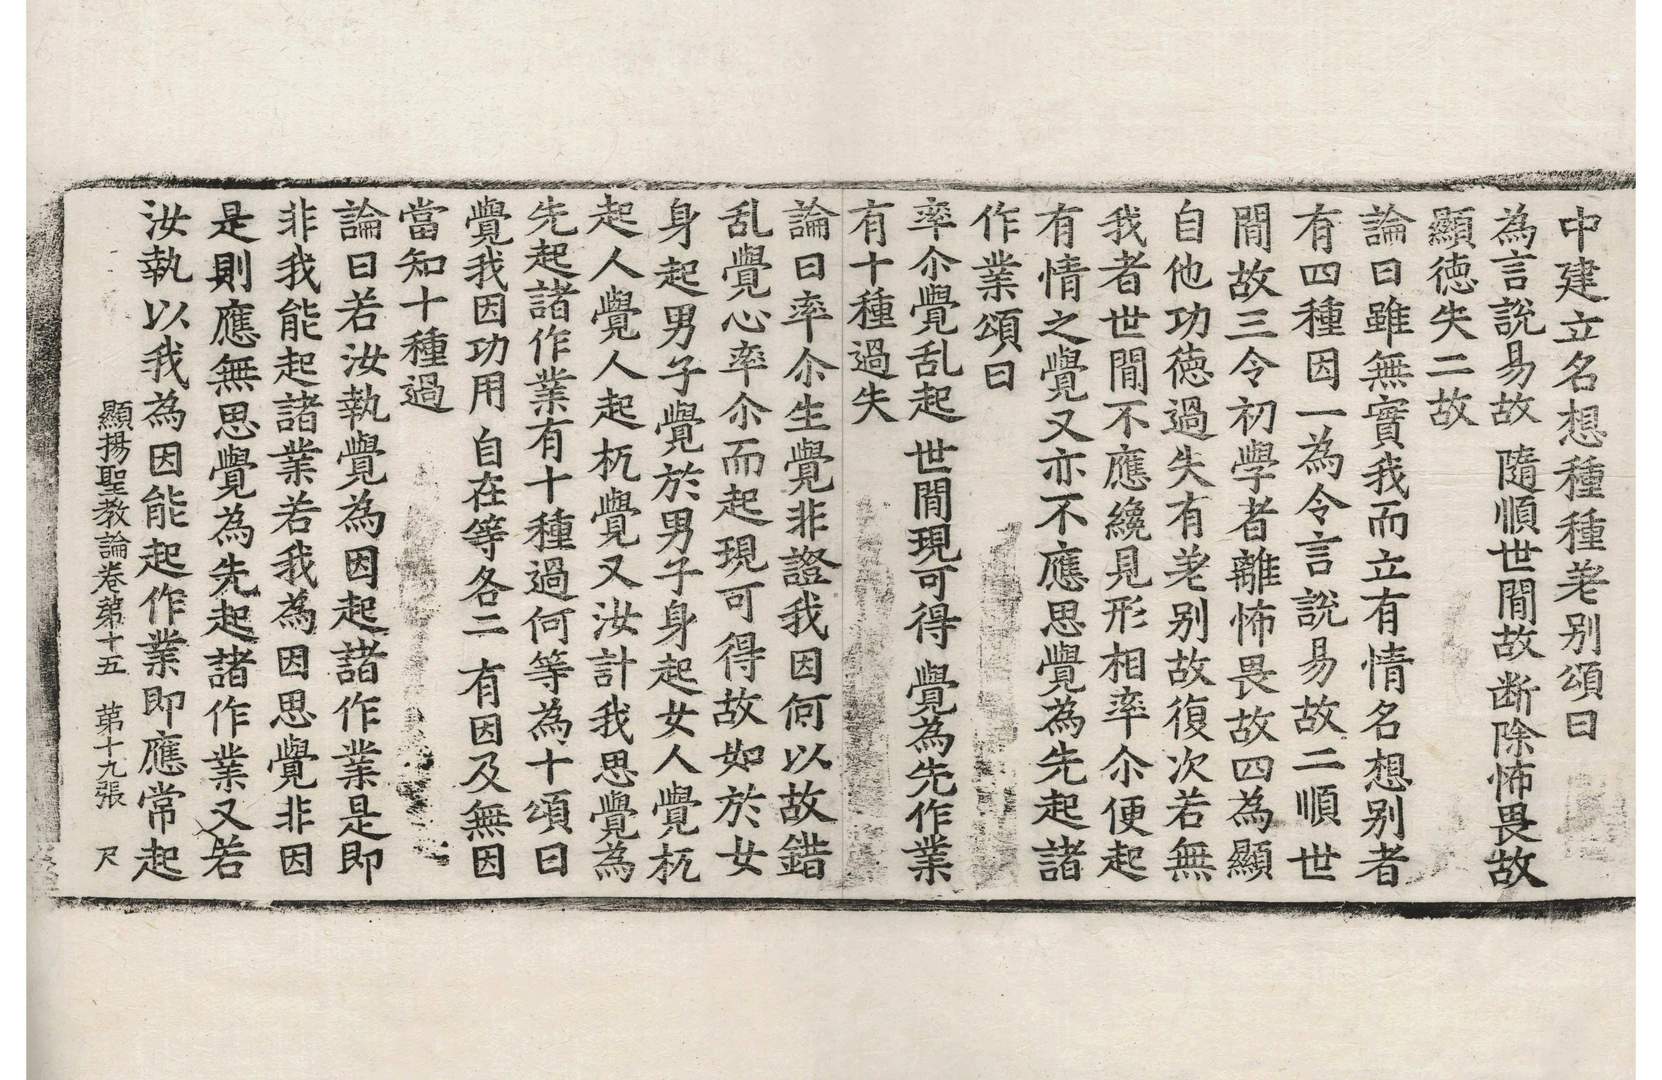 中建立名想種種差别頌曰
為言說易故 隨順世間故 断除怖畏故
顯徳失二故
論曰雖無實我而立有情名想别者
有四種因一為令言說易故二順世
間故三令初學者離怖畏故四為顯
自他功徳過失有差别故復次若無
我者世間不應纔見形相率尒便起
有情之覺又亦不應思覺為先起諸
作業頌曰
率尒覺乱起 世間現可得 覺為先作業
有十種過失
論曰率尒生覺非證我因何以故錯
乱覺心率尒而起現可得故如於女
身起男子覺於男子身起女人覺杌
起人覺人起杌覺又汝計我思覺為
先起諸作業有十種過何等為十頌曰
覺我因功用 自在等各二 有因及無因
當知十種過
論曰若汝執覺為因起諸作業是即
非我能起諸業若我為因思覺非因
是則應無思覺為先起諸作業又若
汝執以我為因能起作業即應常起
顯揚聖教論卷第十五 第十九張 尺